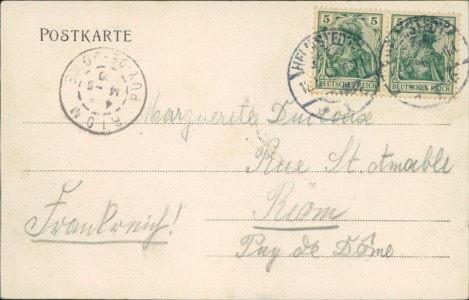 POSTKARTE
5 5
DEUTSCHES REICH DEUTSCHES REICH
HELMSTEDT
RIOM
PUY-DE-DOME
Marguerite
Rue St. Amable
Frankreich!
Riom
Puy de Dôme.